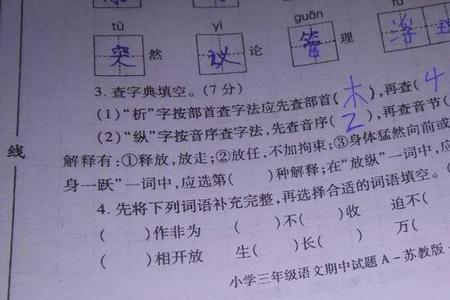 tū yì guǎn
突然 议论 管理
3.查字典填空。(7分)
(1)“析”字按部首查字法应先查部首(木),再查(4
(2)“纵”字按音序查字法,先查音序(Z),再查音节(
解释有:①释放,放走;②放任,不加拘束;③身体猛然向前或
身一跃”一词中,应选第( )种解释;在“放纵”一词中,应
4.先将下列词语补充完整,再选择合适的词语填空。(
( )作非为 ( )不( )收 迫不(
( )相开放 生( )长( ) 万(
小学三年级语文期中试题A-苏教版
线